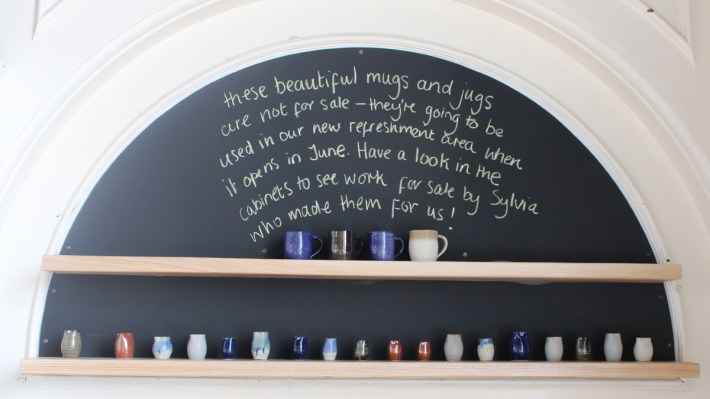 these beautiful mugs and jugs
are not for sale – they're going to be
used in our new refreshment area when
it opens in June. Have a look in the
cabinets to see work for sale by Sylvia
who made them for us!